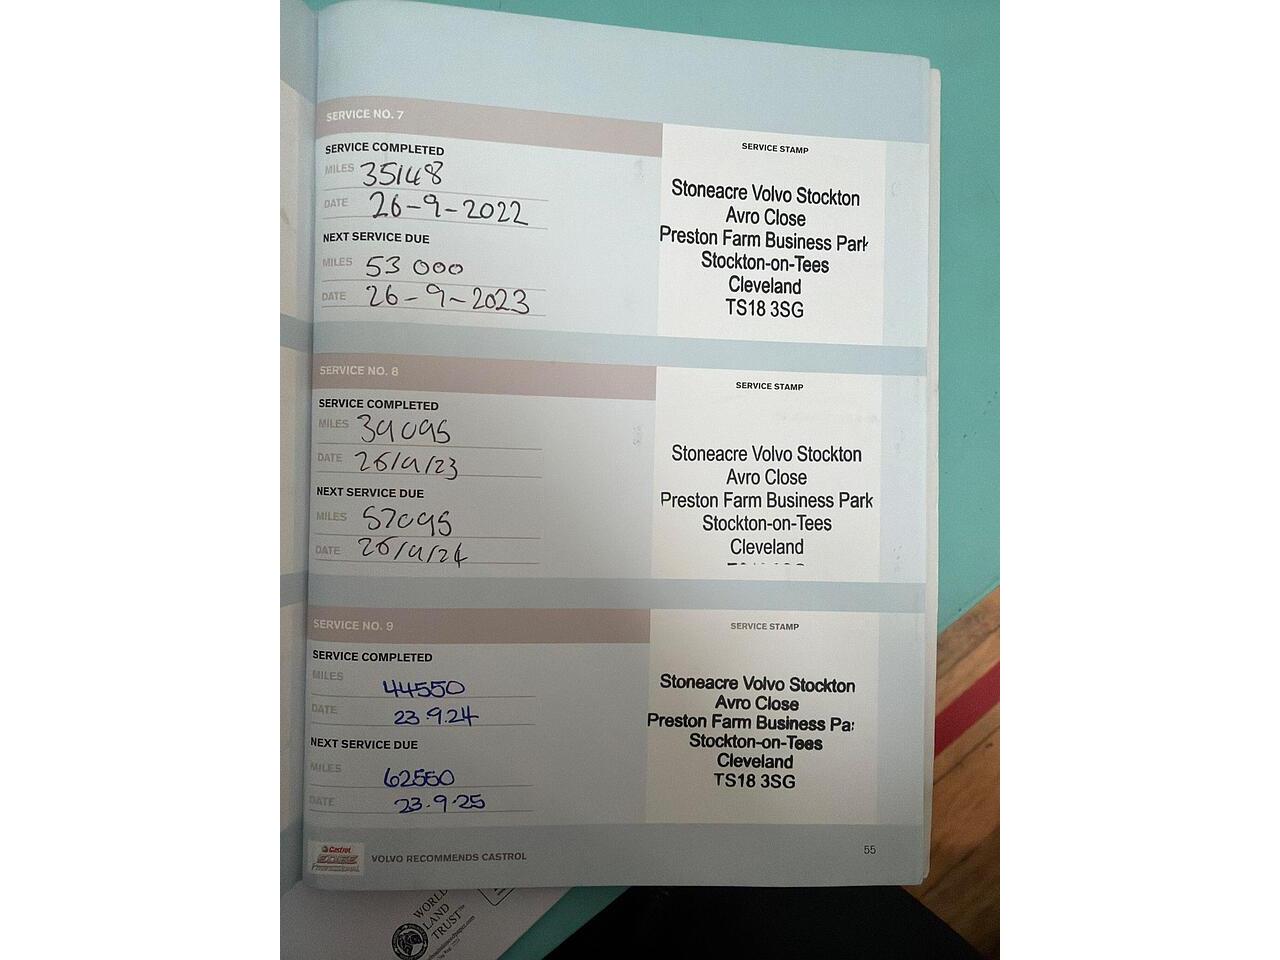 SERVICE NO. 7
SERVICE COMPLETED
MILES 35148
DATE 26-9-2022
NEXT SERVICE DUE
MILES 53 000
DATE 26-9-2023
SERVICE STAMP
Stoneacre Volvo Stockton
Avro Close
Preston Farm Business Park
Stockton-on-Tees
Cleveland
TS18 3SG
SERVICE NO. 8
SERVICE COMPLETED
MILES 39095
DATE 26/9/23
NEXT SERVICE DUE
MILES 57095
DATE 26/9/24
SERVICE STAMP
Stoneacre Volvo Stockton
Avro Close
Preston Farm Business Park
Stockton-on-Tees
Cleveland
SERVICE NO. 9
SERVICE COMPLETED
MILES 44550
DATE 23.9.24
NEXT SERVICE DUE
MILES 62550
DATE 23.9.25
SERVICE STAMP
Stoneacre Volvo Stockton
Avro Close
Preston Farm Business Pa
Stockton-on-Tees
Cleveland
TS18 3SG
Castrol
EDGE
PROFESSIONAL
VOLVO RECOMMENDS CASTROL
55
WORLD
LAND
TRUST™